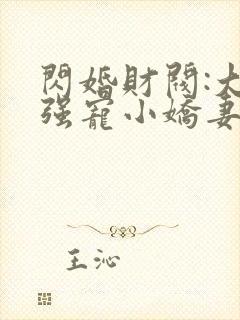 閃婚財閥:大
强寵小嬌妻
王沁